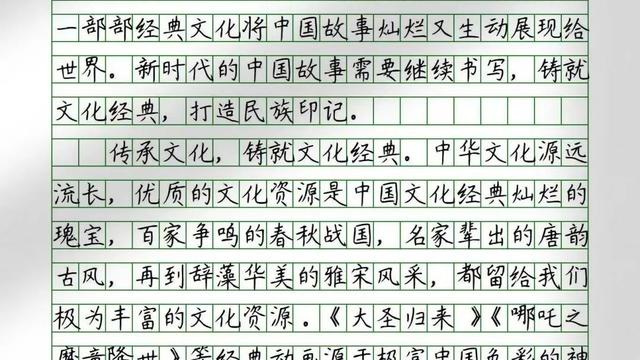 一部部经典文化将中国故事灿烂又生动展现给
世界。新时代的中国故事需要继续书写，铸就
文化经典，打造民族印记。
传承文化，铸就文化经典。中华文化源远
流长，优质的文化资源是中国文化经典灿烂的
瑰宝，百家争鸣的春秋战国，名家辈出的唐韵
古风，再到辞藻华美的雅宋风采，都留给我们
极为丰富的文化资源。《大圣归来》《哪吒之
魔童降世》等经典动画源于极富中国色彩的神